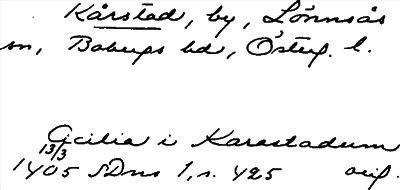 Kårstad, by, Lönnsås
sn, Bobergs hd, Östg. l.
Cecilia i Karastadum
13/3
1405 SDns 1, s. 425 orig.